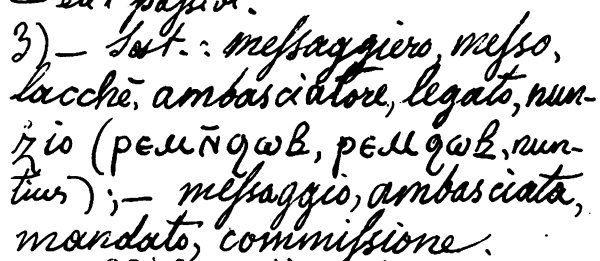 3) — Sost.: meſsaggiero, meſso,
lacchè, ambasciatore, legato, nun-
zio (ⲣⲉⲙⲛ̄ϥⲱⲃ, ⲣⲉⲙϥⲱⲃ, nun-
tius); — meſsaggio, ambasciata,
mandato, commiſsione.